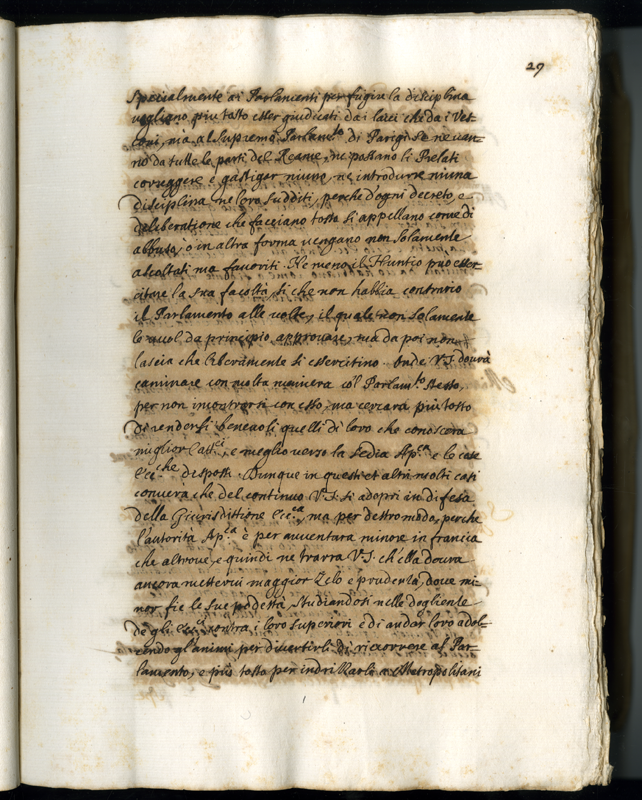 29
Specialmente ai Parlamenti per fugire la disciplina
vogliano piu tosto esser giudicati da i laici che da i Ves-
coui, ma al supremo Parlam.to di Parigi se ne uen-
no da tutte le parti del Reame, ne possano li Prelati
correggere e gastigar niuno, ne introdurre niuna
disciplina ne loro sudditi, perche d'ogni decreto, e
deliberatione che facciano tosto si appellano come di
abbuso, ò in altra forma uengano non solamente
ascoltati ma favoriti. Ne meno il Nuntio può esser-
citare la sua facoltà, si che non habbia contrario
il Parlamento alle uolte, il quale non solamente
le uuol da principio approuare, ma da poi non
lascia che liberamente si essercitino. Onde V.S. dourà
caminare con molta maniera col Parlam.to stesso,
per non incontrarsi con esso, ma cercarà più tosto
di rendersi beneuoli quelli di loro che conoscerà
miglior Catt.ci, e meglio uerso la Sedia Ap.ca e le cose
Ecc.che disposti. Dunque in questi et altri molti casi
conuerà che del continuo V.S. si adopri in difesa
della Giurisdittione Ecc.ca, ma per destro modo, perche
l'autorità Ap.ca è per auuentura minore in francia
che altroue, e quindi ne trarrà V.S. ch'ella dourà
ancora metterui maggior Zelo e prudenza, doue mi-
nor fie le sue podestà, studiandosi nelle doglienze
degli Ecc.ci contra i loro superiori è di andar loro adol-
cendo gl'animi per diuertirli di ricorrere al Par-
lamento, e più tosto per indrizzarli a Metropolitani